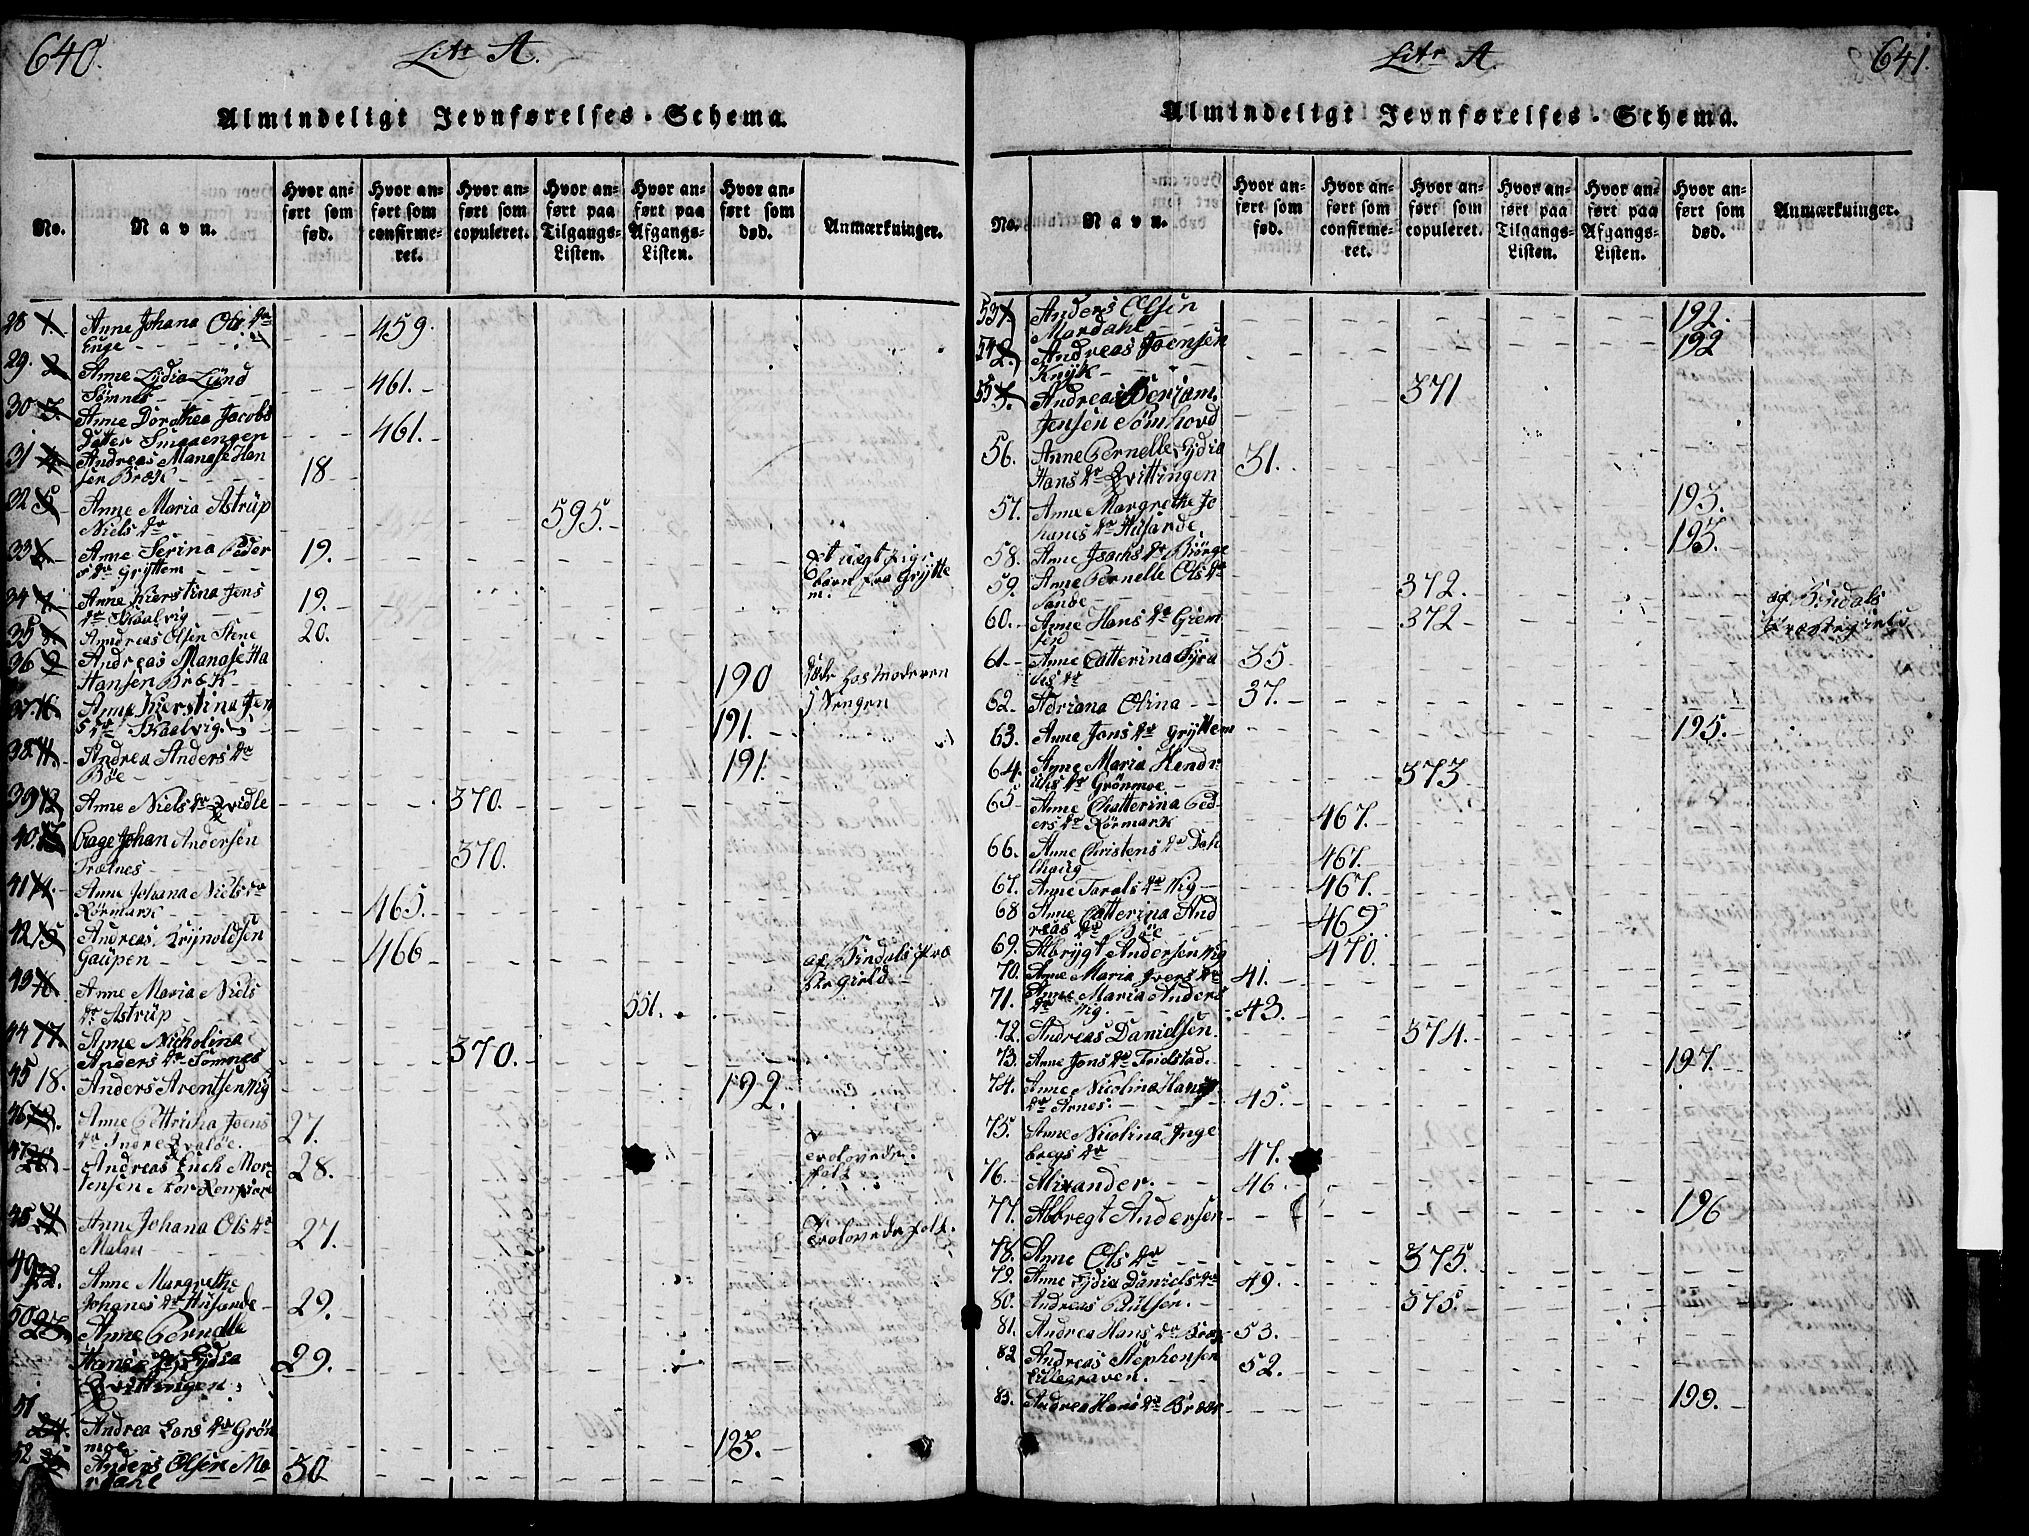 640.
Litr A.
Almindeligt Jevnførelses-Schema.
No.
Navn.
Hvor an-
ført som
fød.
Hvor an-
ført som
confirme-
ret.
Hvor an-
ført som
copuleret.
Hvor an-
ført paa
Tilgangs-
Listen.
Hvor an-
ført paa
Afgangs-
Listen.
Hvor an-
ført som
død.
Anmærkninger.
28 1. Anne Johana Ols dr
Enge 459.
29. 2 Anne Lydia Lund
Sømnes 461.
30 3. Anne Dorothea Jacobs
datter Smaaengen 461.
31 4 Andreas Manase Han
sen Brøk 18
32 5 Anne Maria Astrup
Niels dr 595.
33 6. Anne Serina Peder
s dr Gryttem 19. Et uægt pige
barn fra Grytte
m.
34 7. Anne Kierstina Jens
dr Skaalvig 19.
35 8. Anndreas Olsen Stene 20.
36 9 Andreas Manase Ha
Hansen Brøk 190 døde hos Moderen
i Vengen
37. 10. Anne Kierstina Jen
s dr Skaalvig. 191.
38. 11. Andrea Anders dr
Bøe 191.
39 12 Anne Niels dr Qvidle 370.
40. 13 Aage Johan Andersen
Trælnes 370.
41 14. Anne Johana Niels dr
Rørmark 465.
42 15 Andreas Krynoldsen
Gaupen 466 af Bindals Præ
ste Gield.
43 16 Anne Maria Niels
dr Astrup 551.
44 17. Anne Nicholina
Anders dr Sømnes 370.
45 18. Anders Arentsen Vig 192.
46 19. Anne Pettricha Joens
dr Indre Qvaløe. 27.
47 20 Andreas Erich Mor
tensen 28. Trolovede
folk
48 21 Anne Johana Ols dr
Malm 27. Trolovede folk.
49 22. Anne Margrethe
Johanes dr Husande 29.
50 23. Anne Pernelle
Hans dr Lydia
Qvittingen 29.
51
24. Andrea Lars dr Grøn
moe 193.
52 25 Anders Olsen Ma
rdahl 30
641.
Litr A.
Almindeligt Jevnførelses-Schema.
No.
Navn.
Hvor an-
ført som
fød.
Hvor an-
ført som
confirme-
ret.
Hvor an-
ført som
copuleret.
Hvor an-
ført paa
Tilgangs-
Listen.
Hvor an-
ført paa
Afgangs-
Listen.
Hvor an-
ført som
død.
Anmærkninger.
53 1 Anders Olsen
Mardahl 192.
54 2. Andreas Joensen
Knyk 192
55 3. Andreas Beniam.
Jensen Sømhovd 371
56. Anne Pernelle Lydia
Hans dr Qvittingen 31.
57. Anne Margrethe Jo
hanes dr Husande 193.
58. Anne Isachs dr Biørge 193.
59. Anne Pernelle Ols dr
Sande 372.
60. Anne Hans dr Grem
sen 372 af Bindals
Præstegield
61. Anne Catterina Syra
ds dr 35
62. Adriana Olina 37.
63. Anne Jons dr Gryttem 195.
64. Anne Maria Hendr
ichs dr Grønmoe 373
65 Anne Chatterina Ped
ers dr Rørmark 467.
66. Anne Christens dr Dah
lhaug 467.
67. Anne Tarals dr Vig 467.
68 Anne Catterina And
reas dr Bøe 469
69. Albrygt Andersen Vig 470.
70. Anne Maria Ivers dr 41.
71. Anne Maria Anders
dr Vig. 43.
72. Andreas Danielsen. 374.
73. Anne Jons dr Tridstad. 197.
74. Anne Nicolina Hans
dr Arnes. 45.
75. Anne Nicolina Inge
bregs dr 47.
76. Alixander. 46
77. Albregt Andersen 196
78. Anne Ols dr 375.
79. Anne Lydia Daniels dr 49.
80. Andreas Paulsen. 375.
81. Andrea Hans dr Bræk 53.
82 Andreas Stephensen
Lillegraven. 52.
83. Andrea Hans dr Bræk 199.